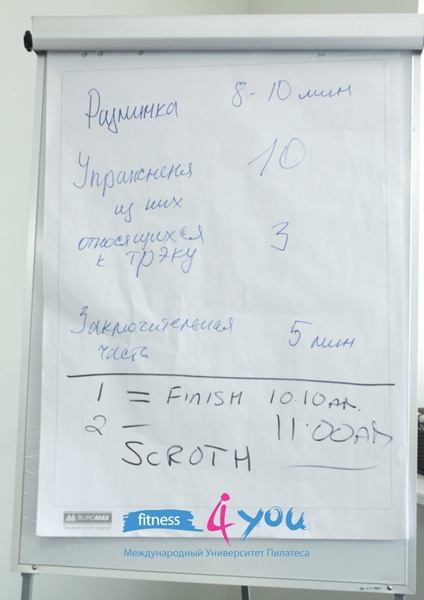 Разминка 8-10 мин
Упражнения 10
из них
относящихся 3
к трэку
Заключительная 5 мин
часть
1 = FINISH 10.10 AM.
2 – 11.00 AM
SCROTH
BUROMAX
fitness 4 you
Международный Университет Пилатеса